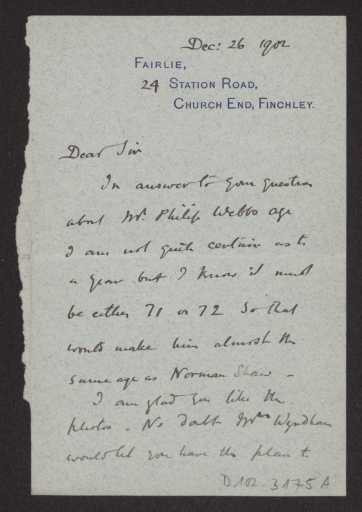 Dec: 26 1902
FAIRLIE,
24 STATION ROAD,
CHURCH END, FINCHLEY.
Dear Sir
In answer to your question
about Mr. Philip Webbs age
I am not quite certain as to
a year but I know it must
be either 71 or 72 So that
would make him almost the
same age as Norman Shaw -
I am glad you like the
photos. No doubt Mrs Wyndham
would let you have the plan t
D.102-3175A